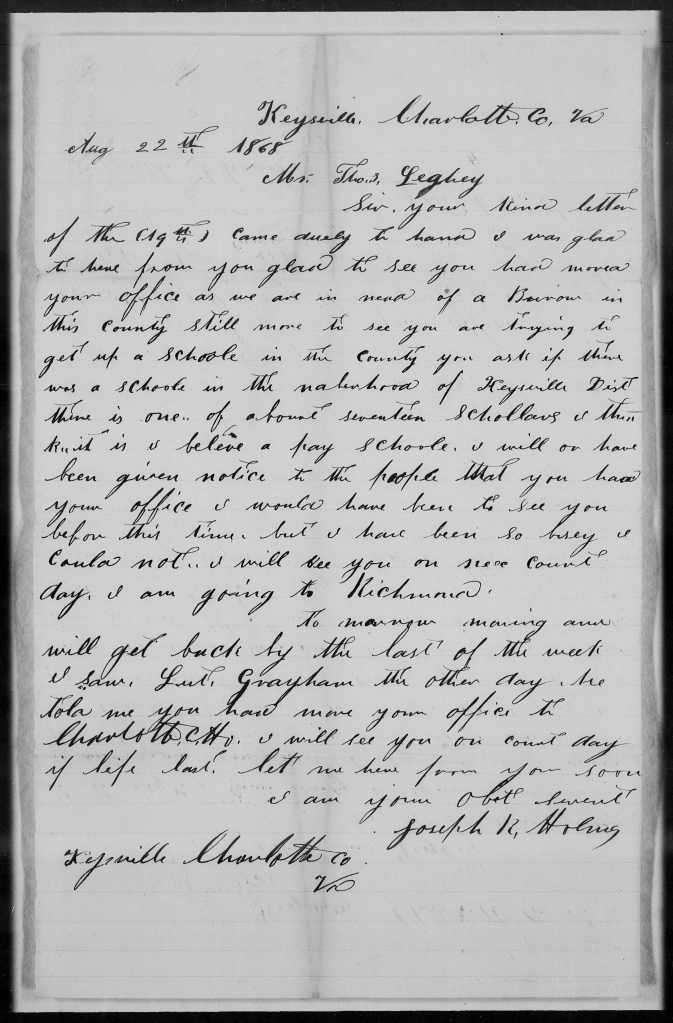 Keysville, Charlotte, Co, Va
Aug 22th 1868
Mr. Thos, Leghey
Sir. your kind letter
of the (19th) came duely to hand I was glad
to here from you glad to see you had moved
your office as we are in nead of a Burow in
this county still more to see you are trying to
get up a schoole in the county you ask if there
was a schoole in the naberhood of Keysville Dist
there is one.. of abount seventeen schollars I thin
k..it is I beleve a pay schoole. I will or have
been given notice to the people that you had
your office I would have been to see you
befor this time. but I have been so bisey I
could not.. I will see you on nex count
day. I am going to Richmond.
to morrow moring and
will get back by the last of the week
I saw. Lut. Grayham the other day. he
told me you had move your office to
Charlotte, C,Ho. I will see you on count day
if life last. let me here from you soon
I am your Obet servent
Joseph R, Holmes
Keysville Charlotte co.
Va